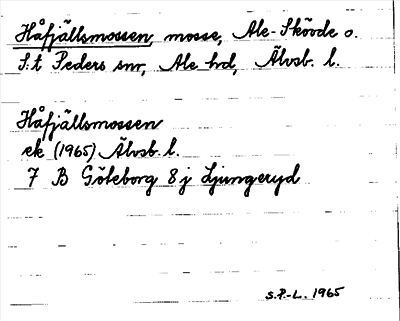 Håfjällsmossen, mosse, Ale-Skövde o.
S:t Peders snr, Ale hd, Älvsb. l.
Håfjällsmossen
ek (1965) Älvsb. l.
7 B Göteborg 8 j Ljungeryd
S.P.-L. 1965